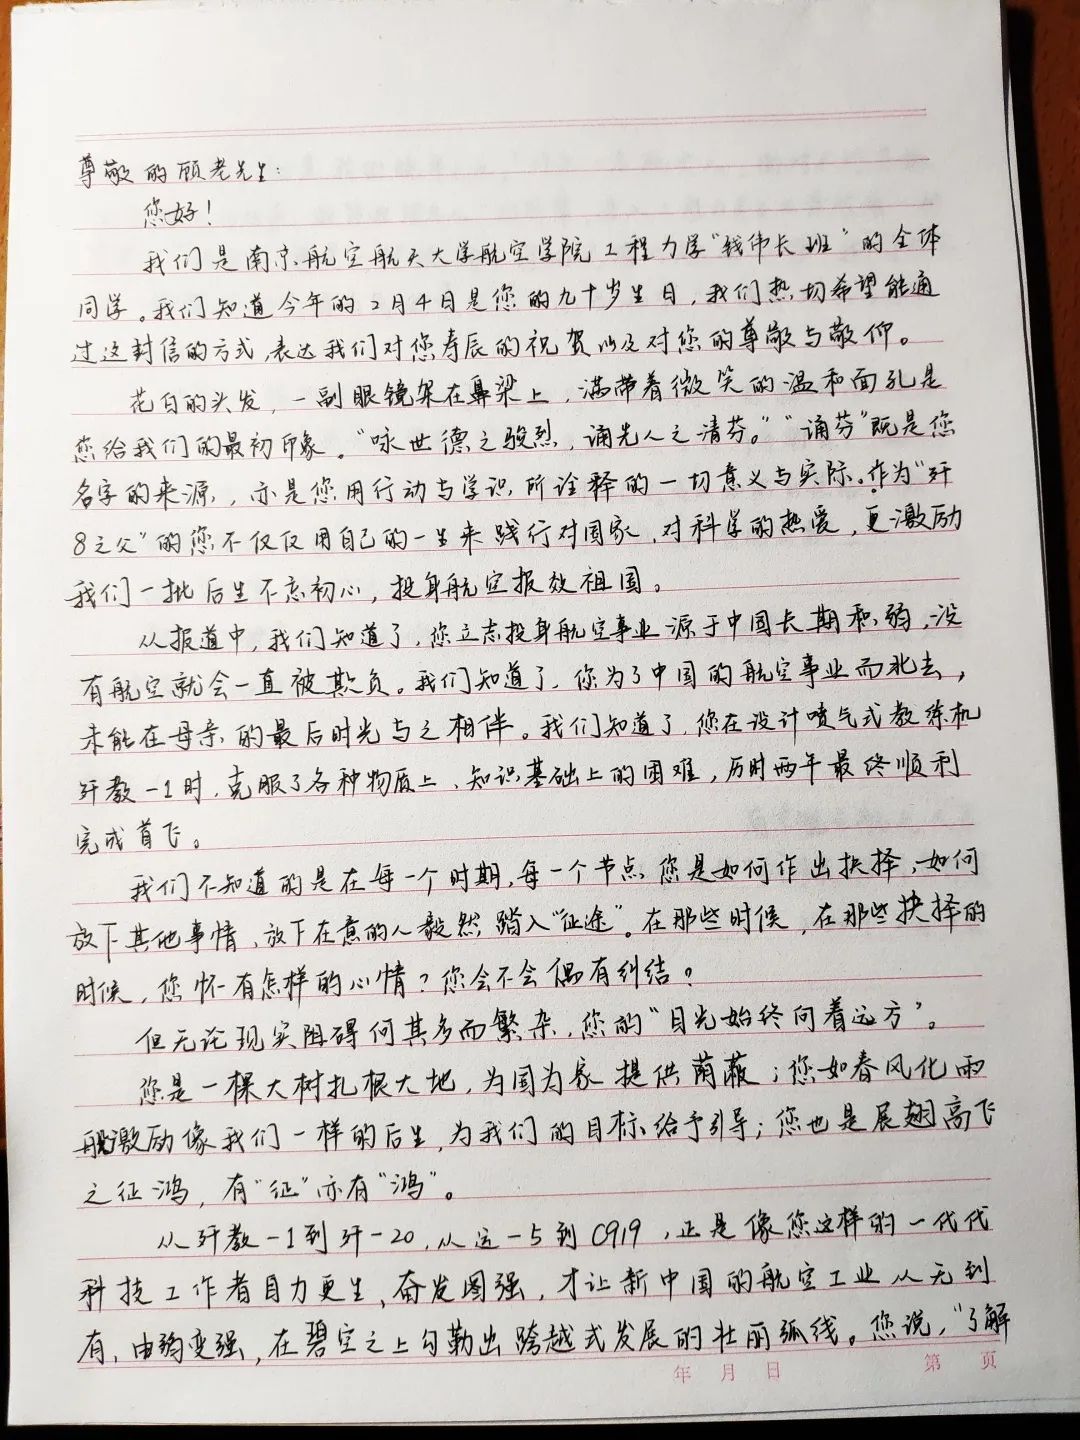 尊敬的顾老先生：
您好！
我们是南京航空航天大学航空学院工程力学“钱伟长班”的全体
同学。我们知道今年的2月4日是您的九十岁生日，我们热切希望能通
过这封信的方式，表达我们对您寿辰的祝贺以及对您的尊敬与敬仰。
花白的头发，一副眼镜架在鼻梁上，满带着微笑的温和面孔是
您给我们的最初印象。“咏世德之骏烈，诵先人之清芬。”“诵芬”既是您
名字的来源，亦是您用行动与学识所诠释的一切意义与实际。作为“歼
8之父”的您不仅仅用自己的一生来践行对国家、对科学的热爱，更激励
我们一批后生不忘初心，投身航空报效祖国。
从报道中，我们知道了，您立志投身航空事业源于中国长期积弱，没
有航空就会一直被欺负。我们知道了，您为了中国的航空事业而北去，
未能在母亲的最后时光与之相伴。我们知道了，您在设计喷气式教练机
歼教-1时，克服了各种物质上、知识基础上的困难，历时两年最终顺利
完成首飞。
我们不知道的是在每一个时期，每一个节点，您是如何作出抉择，如何
放下其他事情、放下在意的人毅然踏入“征途”。在那些时候，在那些抉择的
时候，您怀有怎样的心情？您会不会偶有纠结？
但无论现实阻碍何其多而繁杂，您的“目光始终向着远方”。
您是一棵大树扎根大地，为国为家提供荫蔽；您如春风化雨
般激励像我们一样的后生，为我们的目标给予引导；您也是展翅高飞
之征鸿，有“征”亦有“鸿”。
从歼教-1到歼-20，从运-5到C919，正是像您这样的一代代
科技工作者自力更生、奋发图强，才让新中国的航空工业从无到
有、由弱变强，在碧空之上勾勒出跨越式发展的壮丽弧线。您说，“了解
年 月 日 第 页